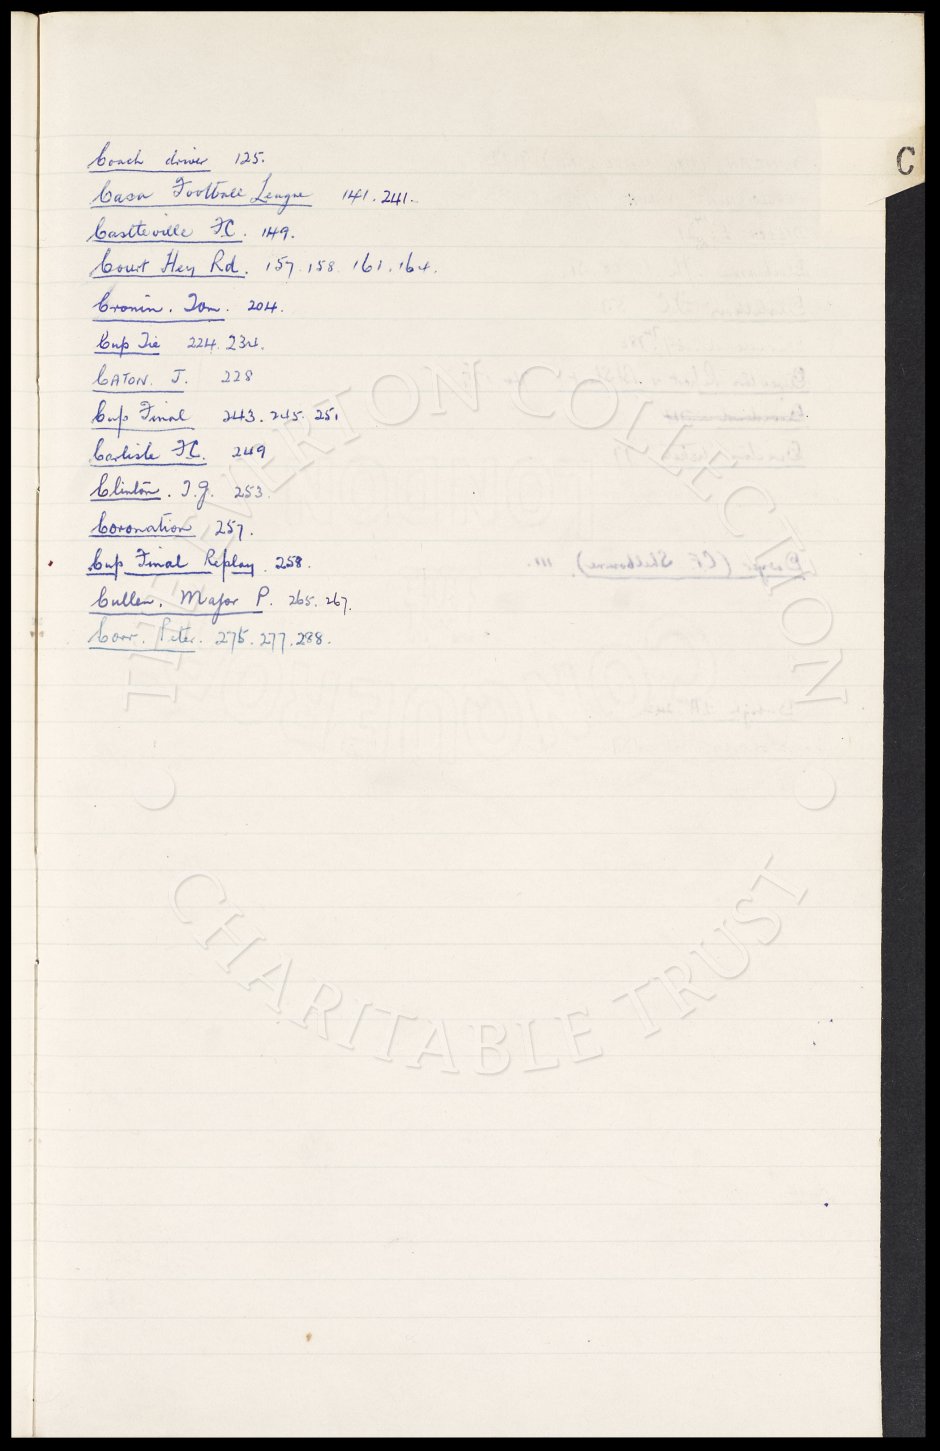 C
Coach driver 125.
Casa Football League 141. 241.
Castleville F.C. 149.
Court Hey Rd. 157. 158. 161. 164.
Cronin. Tom. 204.
Cup Tie 224. 234.
CATON. J. 228
Cup Final 243. 245. 251
Carlisle F.C. 249
Clinton. T.J. 253
Coronation 257.
Cup Final Replay. 258.
Cullen. Major P. 265. 267.
Corr. Peter. 275. 277. 288.
THE EVERTON COLLECTION
CHARITABLE TRUST